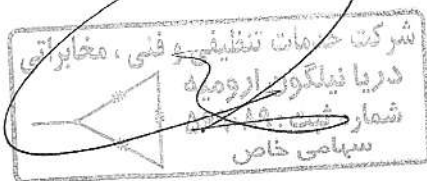 شرکت خدمات تنظیفی و فنی ، مخابراتی
دریا نیلگون ارومیه
شماره ثبت :
سهامی خاص